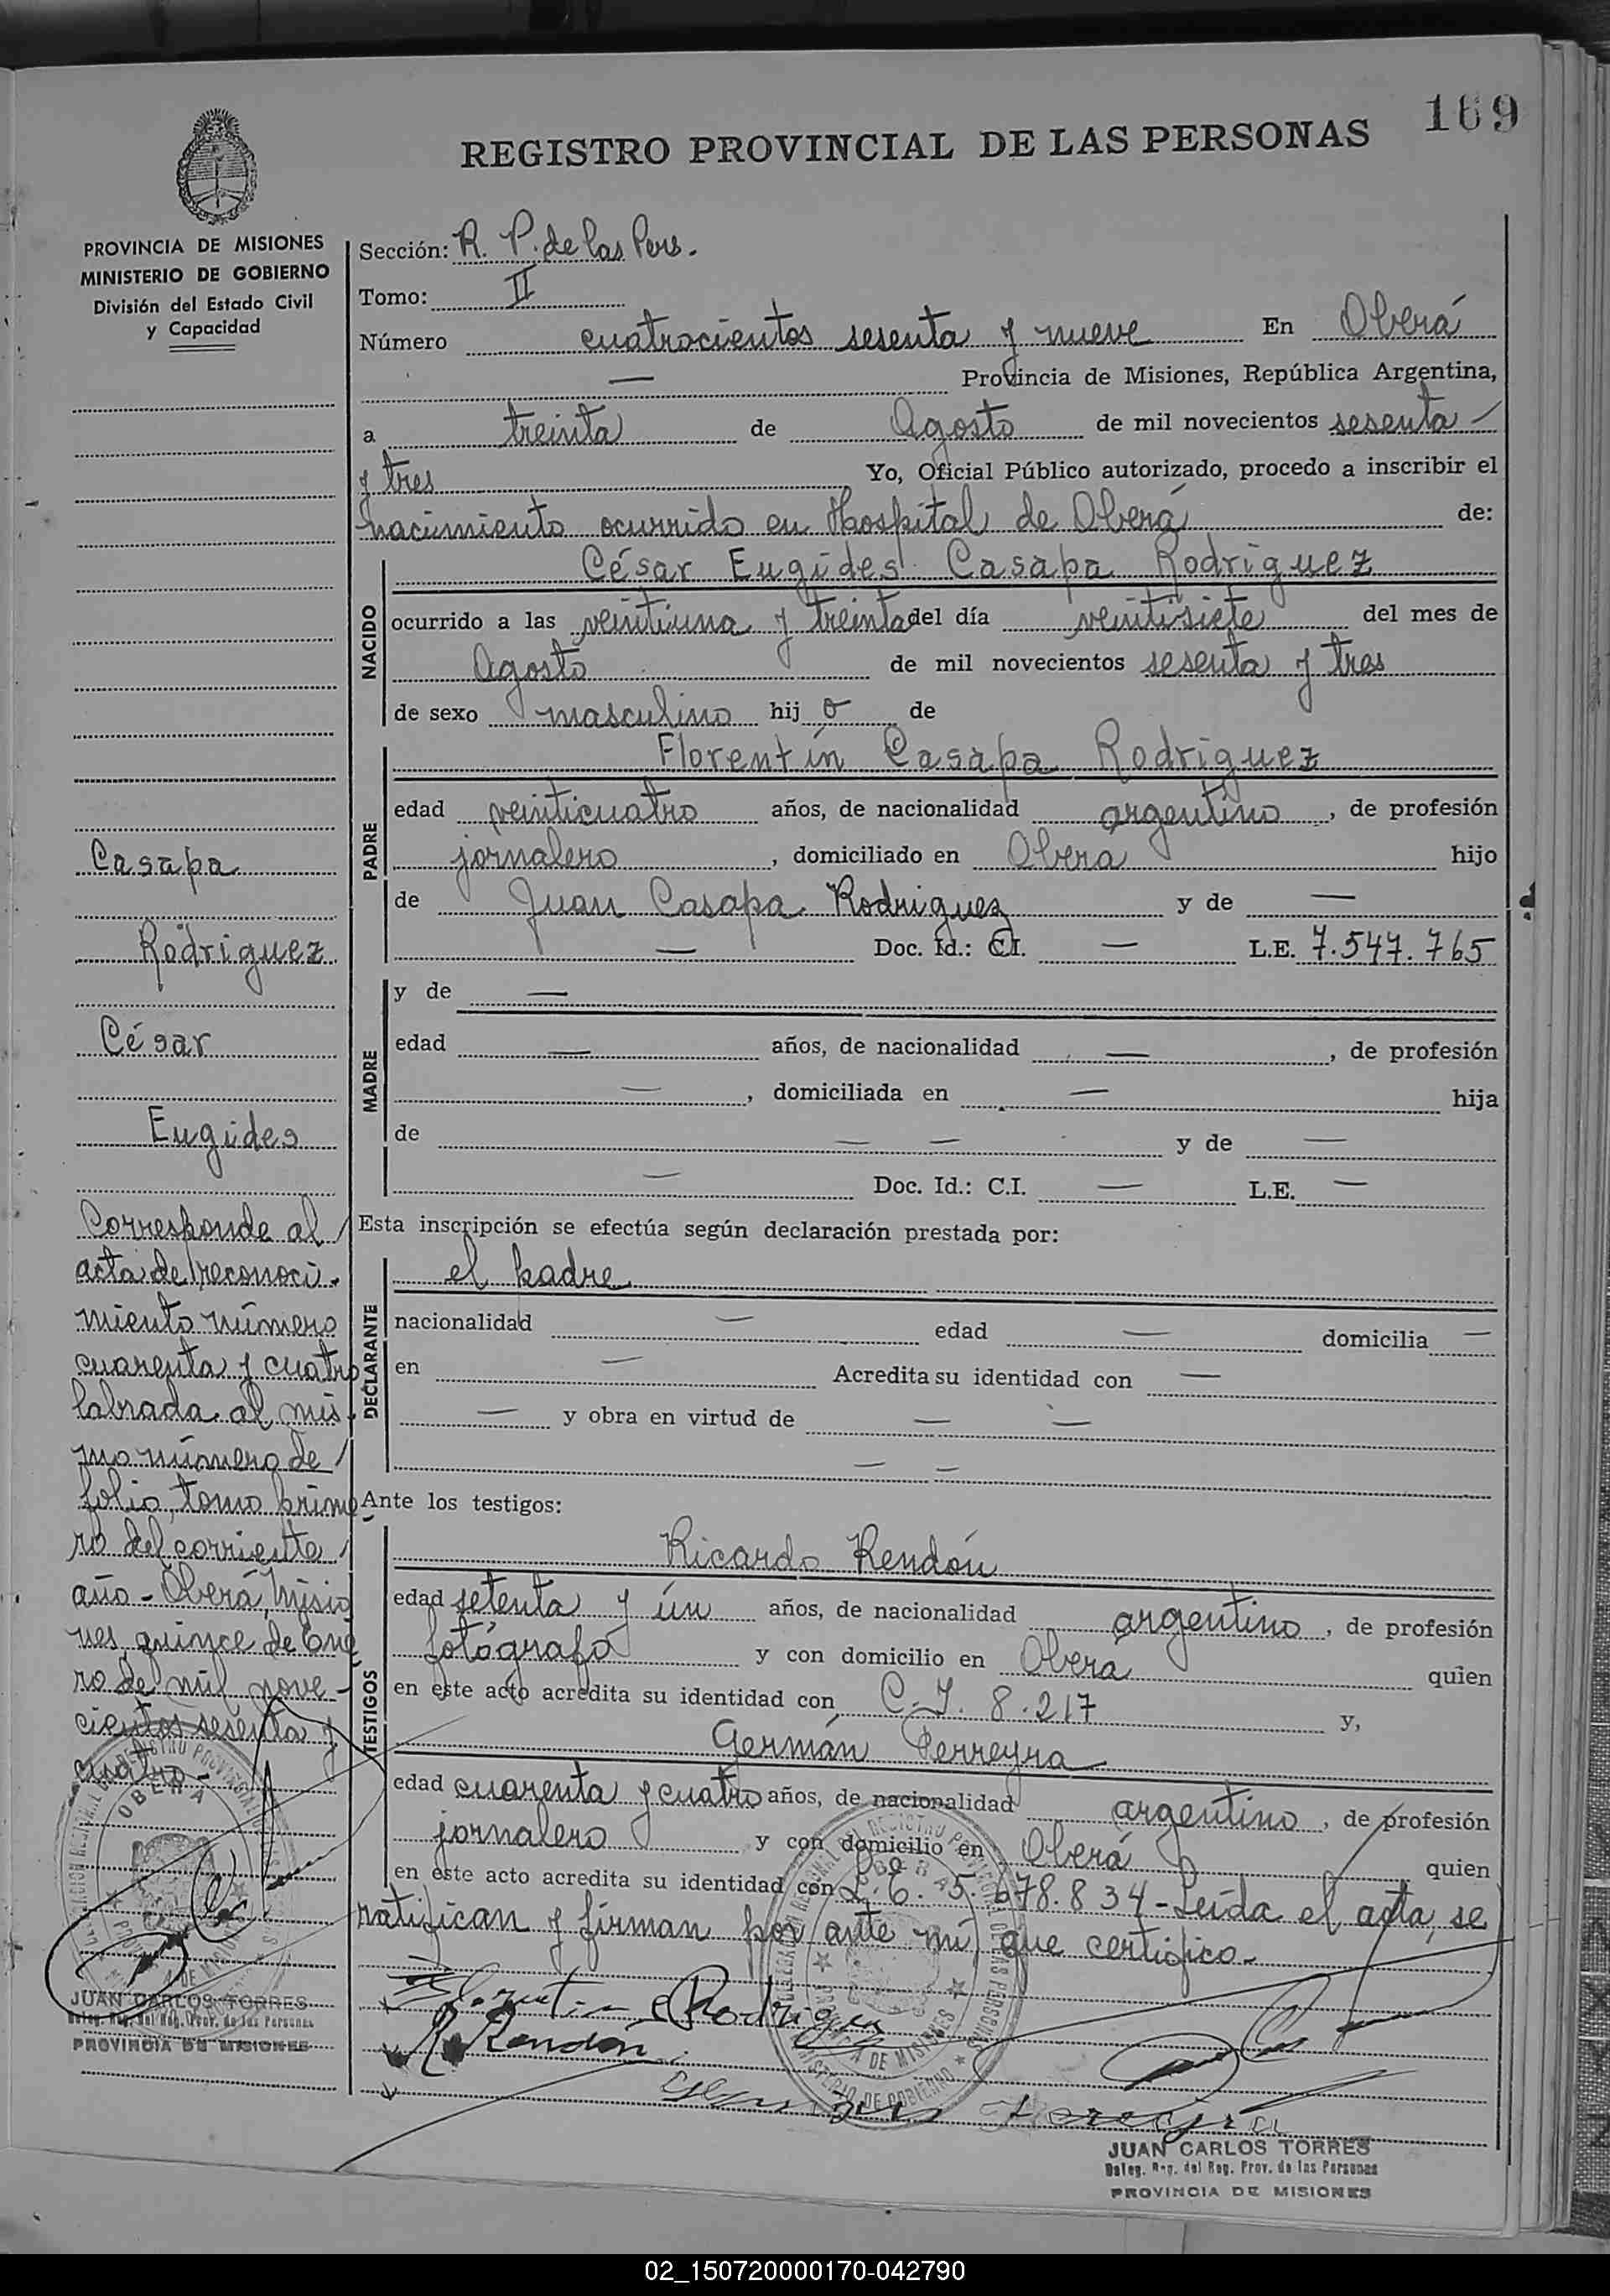 169
REGISTRO PROVINCIAL DE LAS PERSONAS
PROVINCIA DE MISIONES
MINISTERIO DE GOBIERNO
División del Estado Civil
y Capacidad
Casapa
Rodriguez
César
Eugides
Corresponde al
acta de reconoci-
miento número
cuarenta y cuatro
labrada al mis-
mo número de
folio, tomo prime
ro del corriente
año - Oberá, Misio
nes, quince de Ene
ro de mil nove-
cientos sesenta y
cuatro.-
OBERA
JUAN CARLOS TORRES
Deleg. Reg. del Reg. Prov. de las Personas
PROVINCIA DE MISIONES
Sección: R. P. de las Pers.
Tomo: II
Número cuatrocientos sesenta y nueve En Oberá
— Provincia de Misiones, República Argentina,
a treinta de Agosto de mil novecientos sesenta
y tres Yo, Oficial Público autorizado, procedo a inscribir el
nacimiento ocurrido en Hospital de Oberá de:
NACIDO
César Eugides Casapa Rodriguez
ocurrido a las veintiuna y treinta del día veintisiete del mes de
Agosto de mil novecientos sesenta y tres
de sexo masculino hijo de
PADRE
Florentín Casapa Rodriguez
edad veinticuatro años, de nacionalidad argentino, de profesión
jornalero, domiciliado en Obera hijo
de Juan Casapa Rodriguez y de —
— Doc. Id.: C.I. — L.E. 7.547.765
MADRE
y de —
edad — años, de nacionalidad —, de profesión
—, domiciliada en — hija
de — — y de —
— Doc. Id.: C.I. — L.E. —
Esta inscripción se efectúa según declaración prestada por:
DECLARANTE
el padre
nacionalidad — edad — domicilia —
en — Acredita su identidad con —
— y obra en virtud de — —
— —
Ante los testigos:
TESTIGOS
Ricardo Rendón
edad setenta y ún años, de nacionalidad argentino, de profesión
fotógrafo y con domicilio en Oberá quien
en este acto acredita su identidad con C.I. 8.217 y,
Germán Ferreyra
edad cuarenta y cuatro años, de nacionalidad argentino, de profesión
jornalero y con domicilio en Oberá quien
en este acto acredita su identidad con L.E. 5.678.834 - Leída el acta, se
ratifican y firman por ante mí que certifico.-
Florentin C Rodriguez
R Rendón
JUAN CARLOS TORRES
Deleg. Reg. del Reg. Prov. de las Personas
PROVINCIA DE MISIONES
02_150720000170-042790